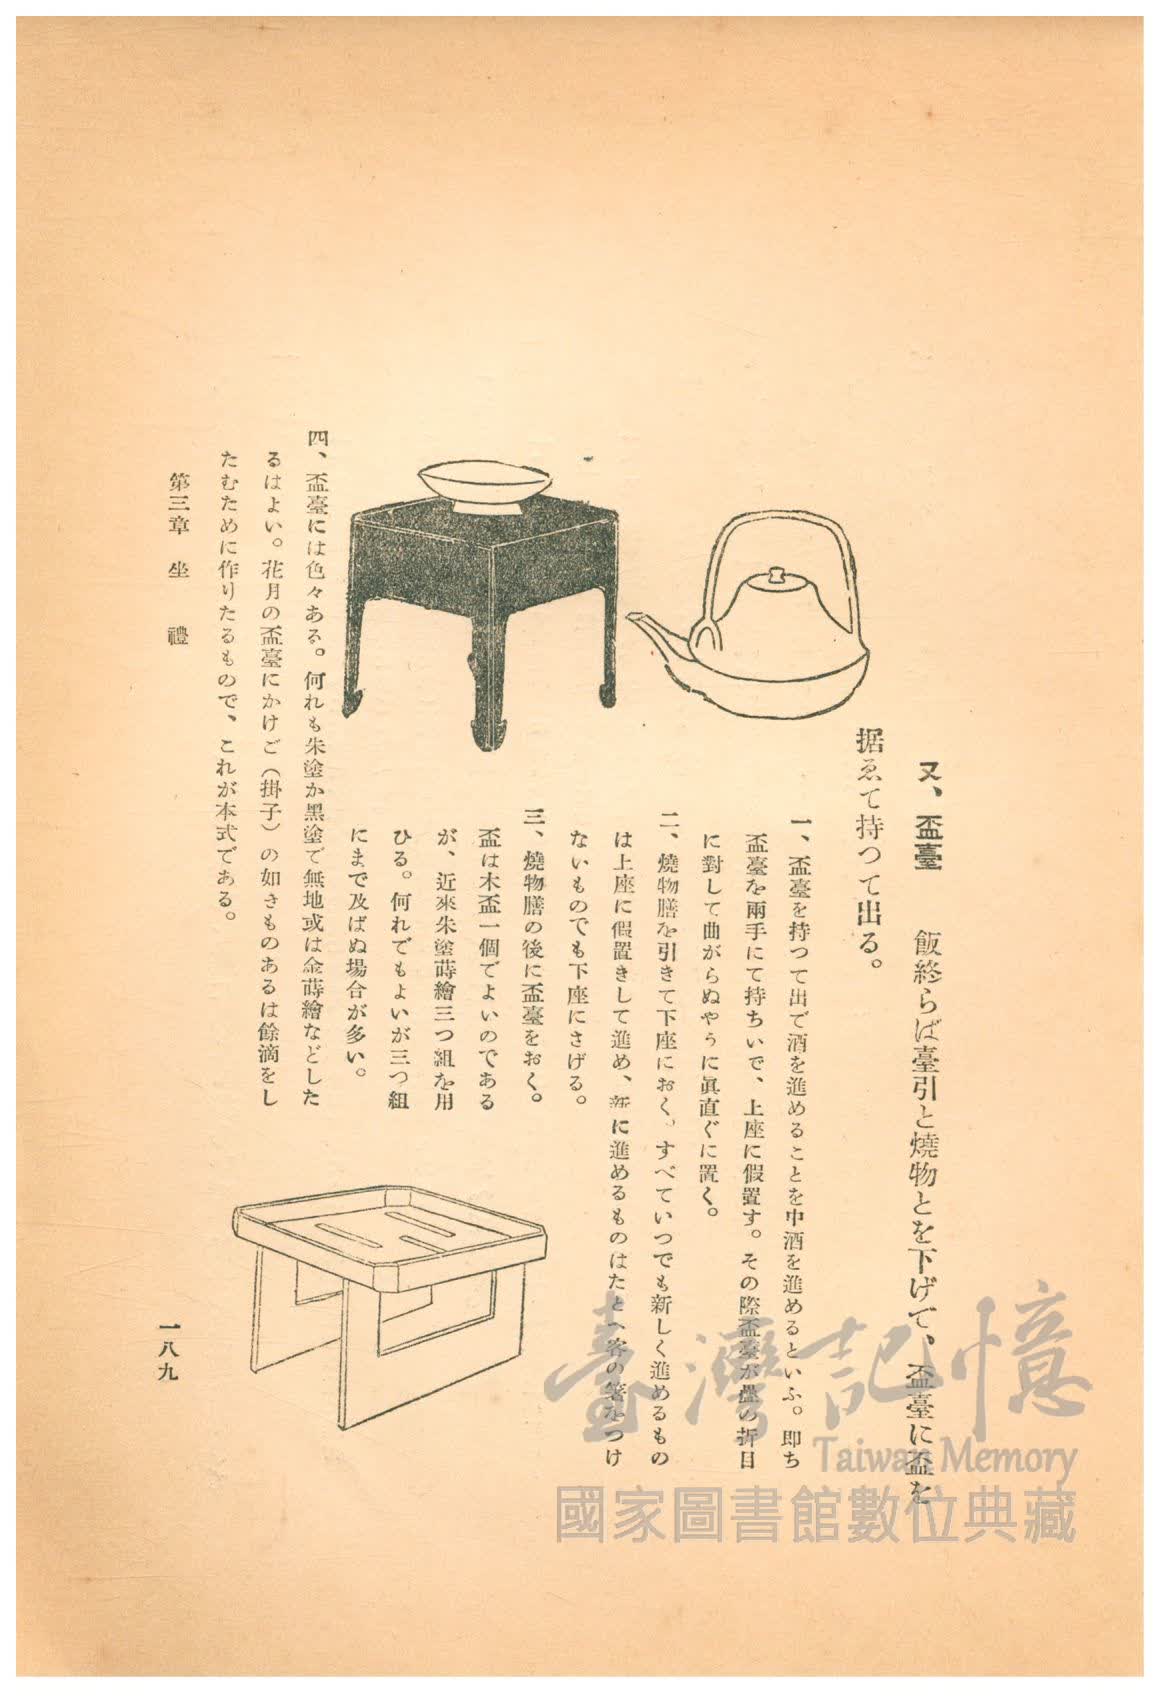 又、盃臺　飯終らば臺引と燒物とを下げて、盃臺に盃を
据ゑて持つて出る。
一、盃臺を持つて出で酒を進めることを中酒を進めるといふ。卽ち
盃臺を兩手にて持ちいで、上座に假置す。その際盃臺が疊の折目
に對して曲がらぬやうに眞直ぐに置く。
二、燒物膳を引きて下座におく。すべていつでも新しく進めるもの
は上座に假置きして進め、新に進めるものはたとへ客の箸をつけ
ないものでも下座にさげる。
三、燒物膳の後に盃臺をおく。
盃は木盃一個でよいのである
が、近來朱塗蒔繪三つ組を用
ひる。何れでもよいが三つ組
にまで及ばぬ場合が多い。
四、盃臺には色々ある。何れも朱塗か黑塗で無地或は金蒔繪などした
るはよい。花月の盃臺にかけご（掛子）の如きものあるは餘滴をし
たむために作りたるもので、これが本式である。
第三章　坐　禮
一八九
臺灣記憶
Taiwan Memory
國家圖書館數位典藏